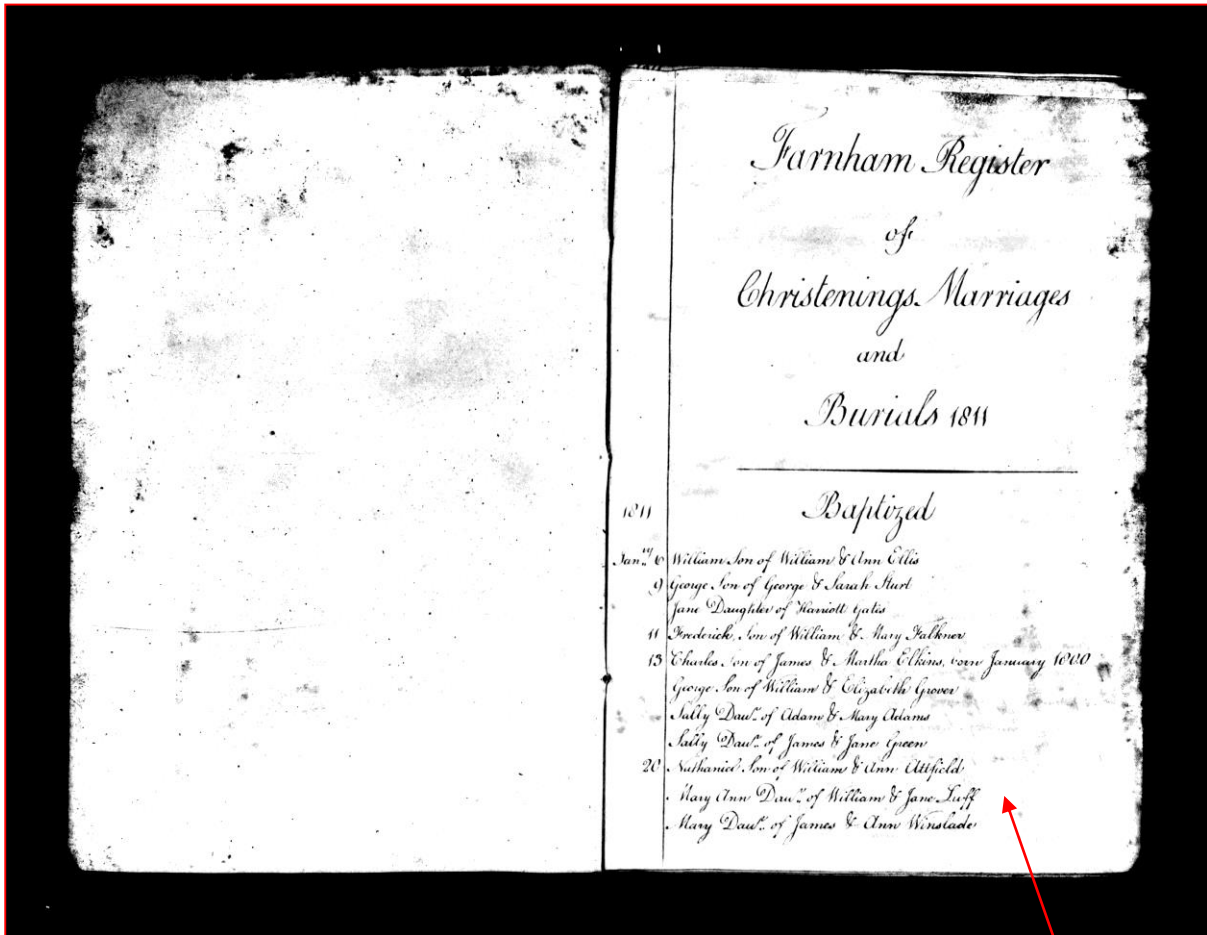 Farnham Register
of
Christenings Marriages
and
Burials 1811
1811 Baptized
Jan.ry 6 William Son of William & Ann Ellis
9 George Son of George & Sarah Sturt
Jane Daughter of Harriott Gates
11 Frederick, Son of William & Mary Falkner
13 Charles Son of James & Martha Elkins, born January 1800
George Son of William & Elizabeth Grover
Sally Daur. of Adam & Mary Adams
Sally Daur. of James & Jane Green
20 Nathaniel Son of William & Ann Attfield
Mary Ann Daur. of William & Jane Luff
Mary Daur. of James & Ann Winslade